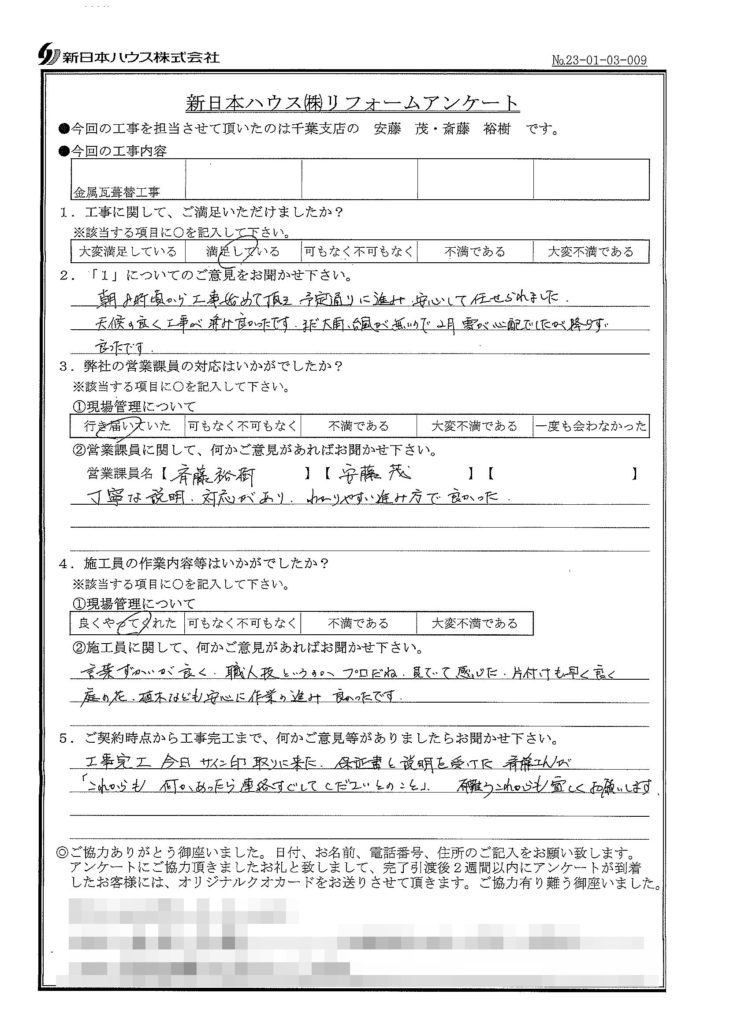 新日本ハウス株式会社
№23-01-03-009
新日本ハウス㈱リフォームアンケート
●今回の工事を担当させて頂いたのは千葉支店の 安藤 茂・斎藤 裕樹 です。
●今回の工事内容
金属瓦葺替工事
1．工事に関して、ご満足いただけましたか？
※該当する項目に○を記入して下さい。
大変満足している 満足している 可もなく不可もなく 不満である 大変不満である
2．「1」についてのご意見をお聞かせ下さい。
朝8時頃から工事始めて頂き 予定通りに進み 安心して任せられました.
天候も良く工事が 進み良かったです. まだ大雨、台風が無いので 2月 雪が心配でしたが降らず
良かったです.
3．弊社の営業課員の対応はいかがでしたか？
※該当する項目に○を記入して下さい。
①現場管理について
行き届いていた 可もなく不可もなく 不満である 大変不満である 一度も会わなかった
②営業課員に関して、何かご意見があればお聞かせ下さい。
営業課員名【 斉藤裕樹 】【 安藤茂 】【 】
丁寧な説明. 対応があり. わかりやすい進み方で良かった.
4．施工員の作業内容等はいかがでしたか？
※該当する項目に○を記入して下さい。
①現場管理について
良くやってくれた 可もなく不可もなく 不満である 大変不満である
②施工員に関して、何かご意見があればお聞かせ下さい。
言葉ずかいが良く. 職人技というのか プロだね. 見ていて感じた. 片付けも早く良く
庭の花. 植木なども安心に作業が進み 良かったです.
5．ご契約時点から工事完工まで、何かご意見等がありましたらお聞かせ下さい。
工事完工 今日 サイン印 取りに来た. 保証書と説明を受けた 斉藤さんが
「これからも 何かあったら連絡すぐして ください とのこと」. 有難うこれからも宜しくお願いします.
◎ご協力ありがとう御座いました。日付、お名前、電話番号、住所のご記入をお願い致します。
アンケートにご協力頂きましたお礼と致しまして、完了引渡後２週間以内にアンケートが到着
したお客様には、オリジナルクオカードをお送りさせて頂きます。ご協力有り難う御座いました。